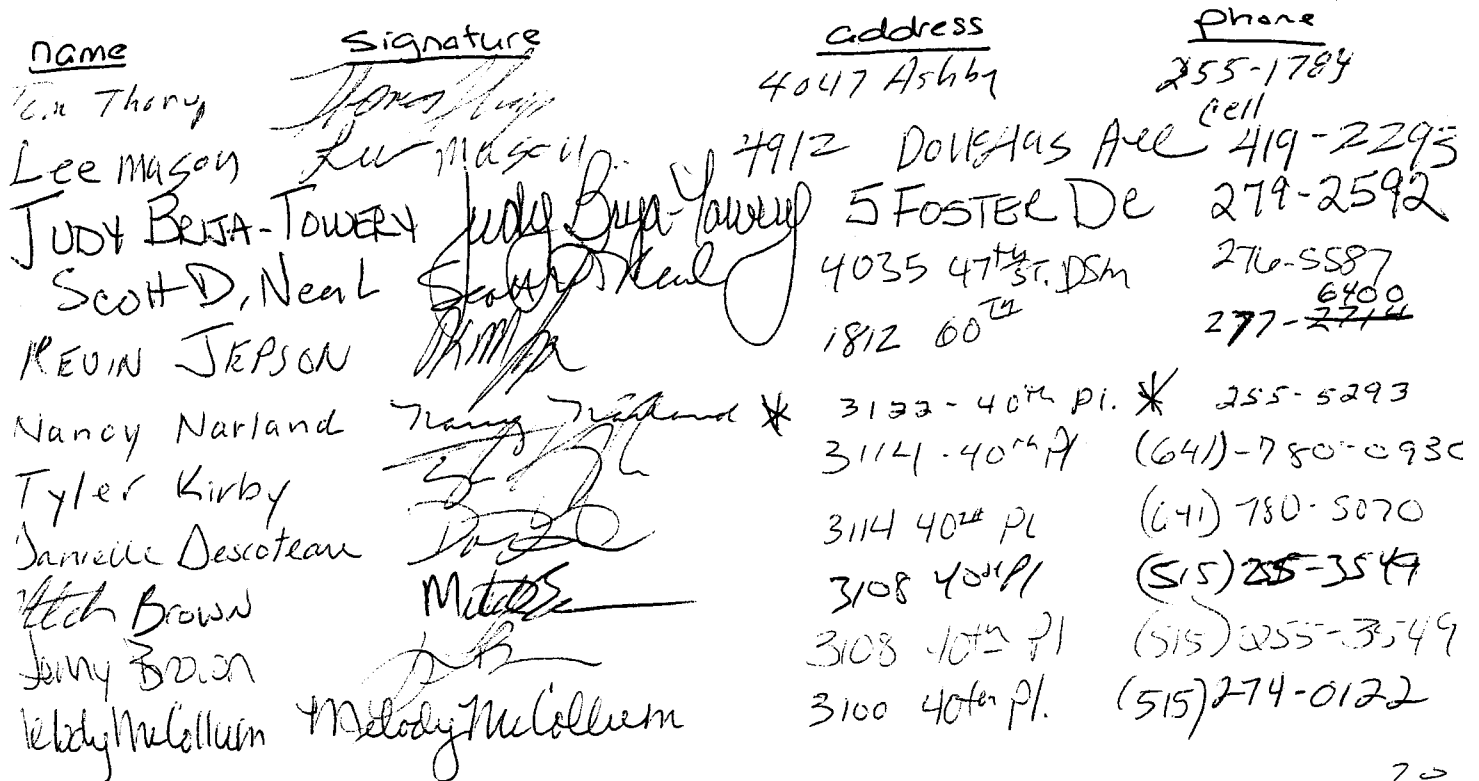 name signature address phone
Thorup 4047 Ashby 255-1784
Lee Mason Lee Mason 4912 Douglas Ave cell 419-2293
JUDY BRIJA-TOWERY Judy Brija-Towery 5 FOSTER Dr 279-2592
Scott D. Neal Scott D Neal 4035 47th ST. DSM 276-5587
KEVIN JEPSON 1812 60TH 277-2714 6400
Nancy Narland Nancy Narland * 3122-40th Pl. * 255-5293
Tyler Kirby 3114-40th Pl (641)-780-0930
Danielle Descoteaux 3114 40th Pl (641) 780-5070
Mitch Brown 3108 40th Pl (515) 255-3549
Jenny Brown 3108 40th Pl (515) 255-3549
Melody McCollum Melody McCollum 3100 40th Pl. (515) 274-0122
20